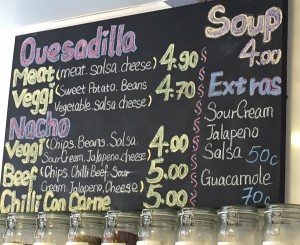 Quesadilla
Meat (meat. salsa. cheese) 4.90
Veggi (Sweet Potato. Beans Vegetable. salsa. cheese) 4.70
Nacho
Veggi (Chips. Beans. Salsa. Sour Cream. Jalapeno. cheese) 4.00
Beef (Chips Chilli Beef. Sour Cream. Jalapeno. Cheese) 5.00
Chilli Con Carne 5.00
Soup
4.00
Extras
Sour Cream
Jalapeno
Salsa 50c
Guacamole
70c